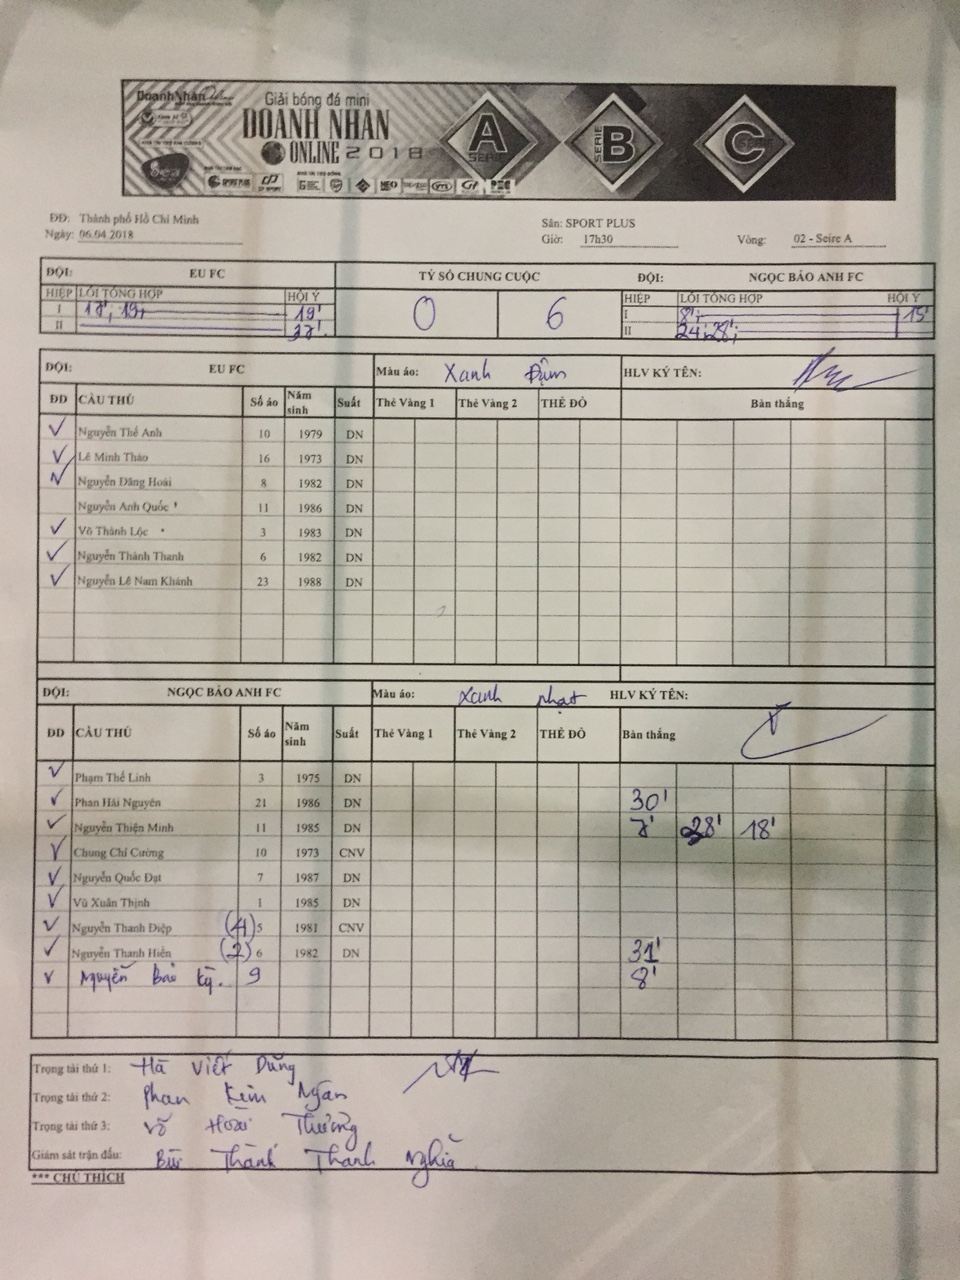 DoanhNhân
Giải bóng đá mini
DOANH NHAN
ONLINE 2018
A SERIE
SERIE B
C SERIE
Sea
SPORT PLUS
ĐĐ: Thành phố Hồ Chí Minh Sân: SPORT PLUS
Ngày: 06.04.2018 Giờ: 17h30 Vòng: 02 - Seire A
ĐỘI: EU FC TỶ SỐ CHUNG CUỘC ĐỘI: NGỌC BẢO ANH FC
HIỆP LỖI TỔNG HỢP HỘI Ý 0 6 HIỆP LỖI TỔNG HỢP HỘI Ý
I 17', 19', 19' I 8', 15'
II 37'. II 24', 28',
ĐỘI: EU FC Màu áo: Xanh Đậm HLV KÝ TÊN:
ĐD CẦU THỦ Số áo Năm sinh Suất Thẻ Vàng 1 Thẻ Vàng 2 THẺ ĐỎ Bàn thắng
✓ Nguyễn Thế Anh 10 1979 DN
✓ Lê Minh Thảo 16 1973 DN
✓ Nguyễn Đăng Hoài 8 1982 DN
Nguyễn Anh Quốc 11 1986 DN
✓ Võ Thành Lộc 3 1983 DN
✓ Nguyễn Thành Thanh 6 1982 DN
✓ Nguyễn Lê Nam Khánh 23 1988 DN
ĐỘI: NGỌC BẢO ANH FC Màu áo: Xanh nhạt HLV KÝ TÊN:
ĐD CẦU THỦ Số áo Năm sinh Suất Thẻ Vàng 1 Thẻ Vàng 2 THẺ ĐỎ Bàn thắng
✓ Phạm Thế Linh 3 1975 DN
✓ Phan Hải Nguyên 21 1986 DN 30'
✓ Nguyễn Thiện Minh 11 1985 DN 7' 28' 18'
✓ Chung Chí Cường 10 1973 CNV
✓ Nguyễn Quốc Đạt 7 1987 DN
✓ Vũ Xuân Thịnh 1 1985 DN
✓ Nguyễn Thanh Điệp (4) 5 1981 CNV
✓ Nguyễn Thanh Hiền (2) 6 1982 DN 31'
✓ Nguyễn Bảo Kỳ. 9 8'
Trọng tài thứ 1: Hà Viết Dũng
Trọng tài thứ 2: Phan Kim Ngân
Trọng tài thứ 3: Võ Hoài Thưởng
Giám sát trận đấu: Bùi Thành Thanh Nghĩa
*** CHÚ THÍCH